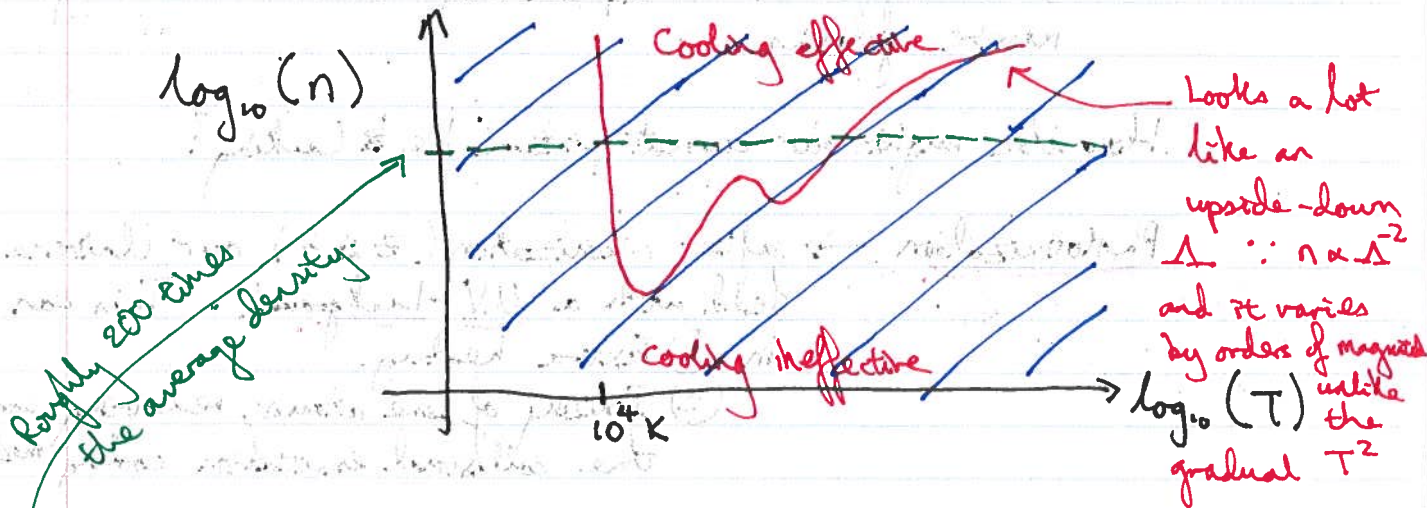 log₁₀(n)
Cooling effective
Looks a lot
like an
upside-down
Λ ∵ n ∝ Λ⁻²
and it varies
by orders of magnitud
unlike
the
gradual T²
Roughly 200 times
the average density.
cooling ineffective
10⁴ K
log₁₀(T)